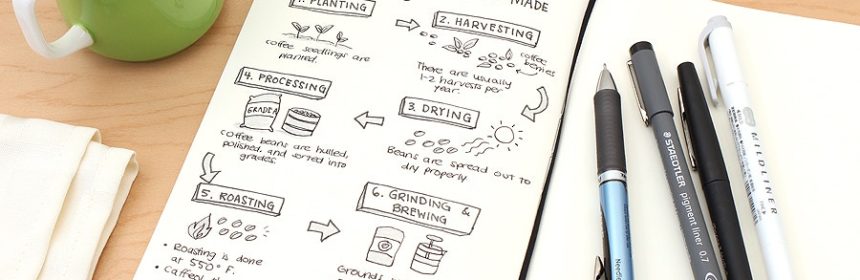 MADE
1. PLANTING
coffee seedlings are
planted.
2. HARVESTING
coffee
berries
There are usually
1-2 harvests per
year.
3. DRYING
Beans are spread out to
dry properly
4. PROCESSING
GRADE A
Coffee beans are hulled,
polished, and sorted into
grades.
5. ROASTING
• Roasting is done
at 550° F.
6. GRINDING &
BREWING
Grounds
STAEDTLER
pigment liner 0.7
MILDLINER